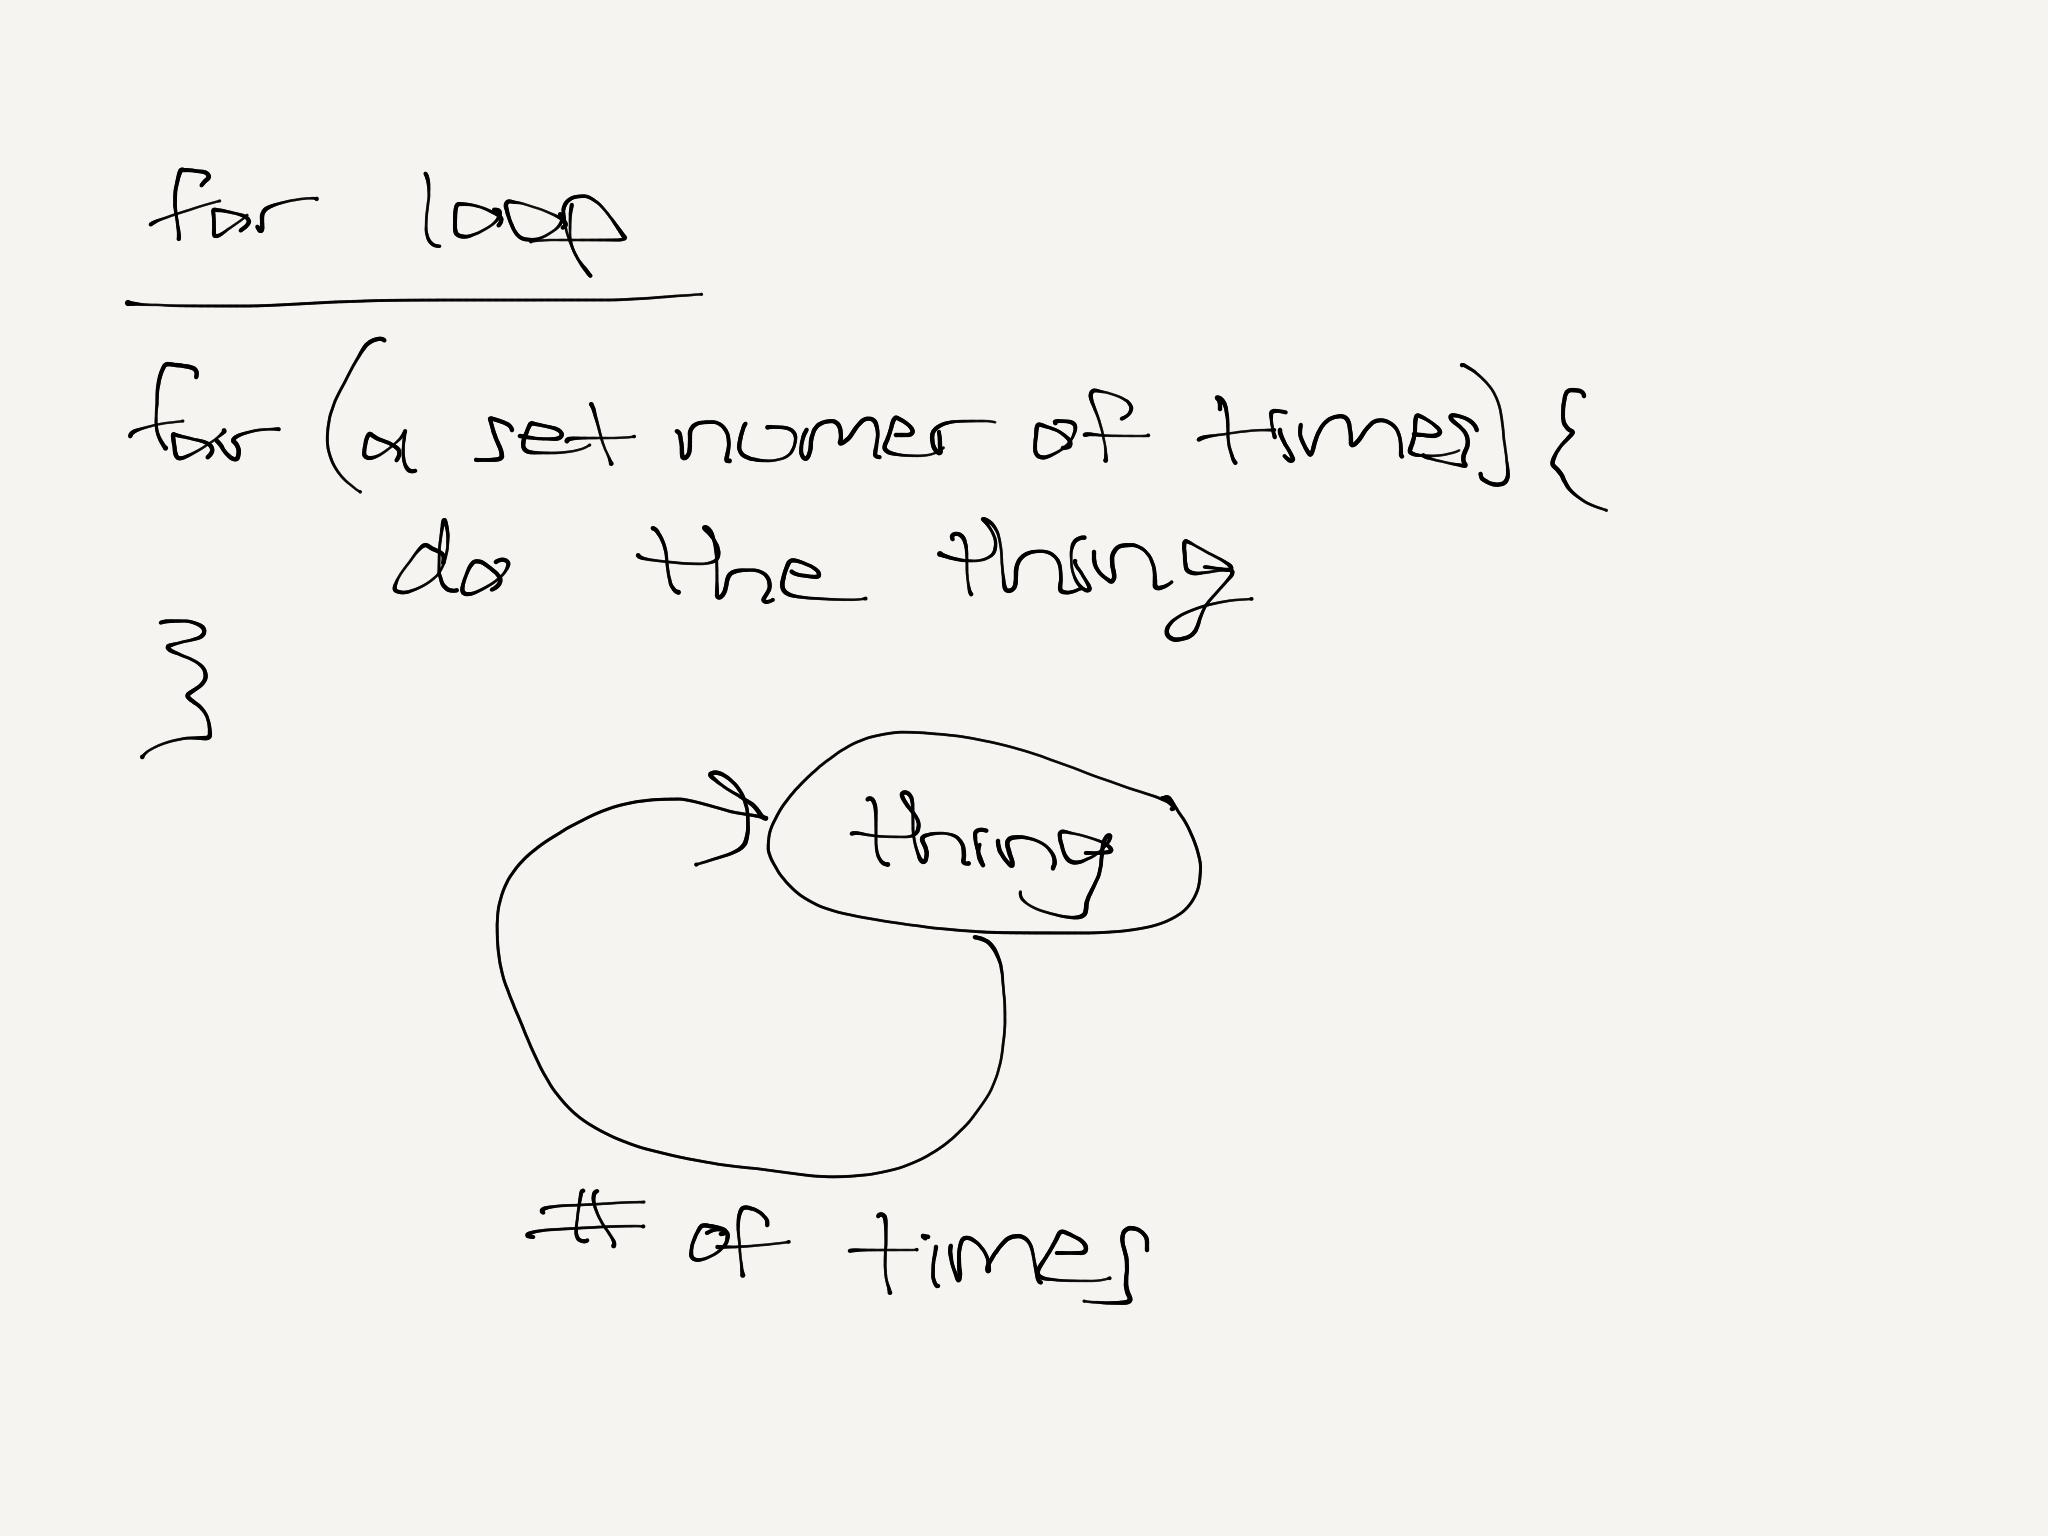 for loop
for (a set numer of times) {
do the thing
}
thing
# of times